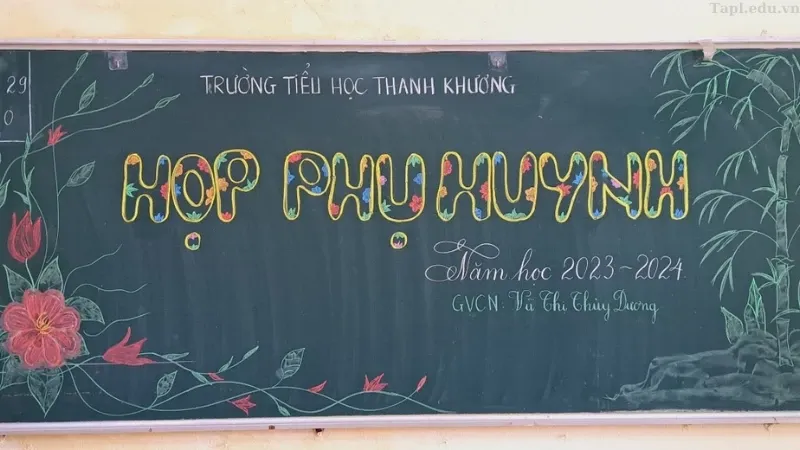 Tapl.edu.vn
29
0
TRƯỜNG TIỂU HỌC THANH KHƯƠNG
HỌP PHỤ HUYNH
Năm học 2023-2024
GVCN. Vũ Thị Thùy Dương